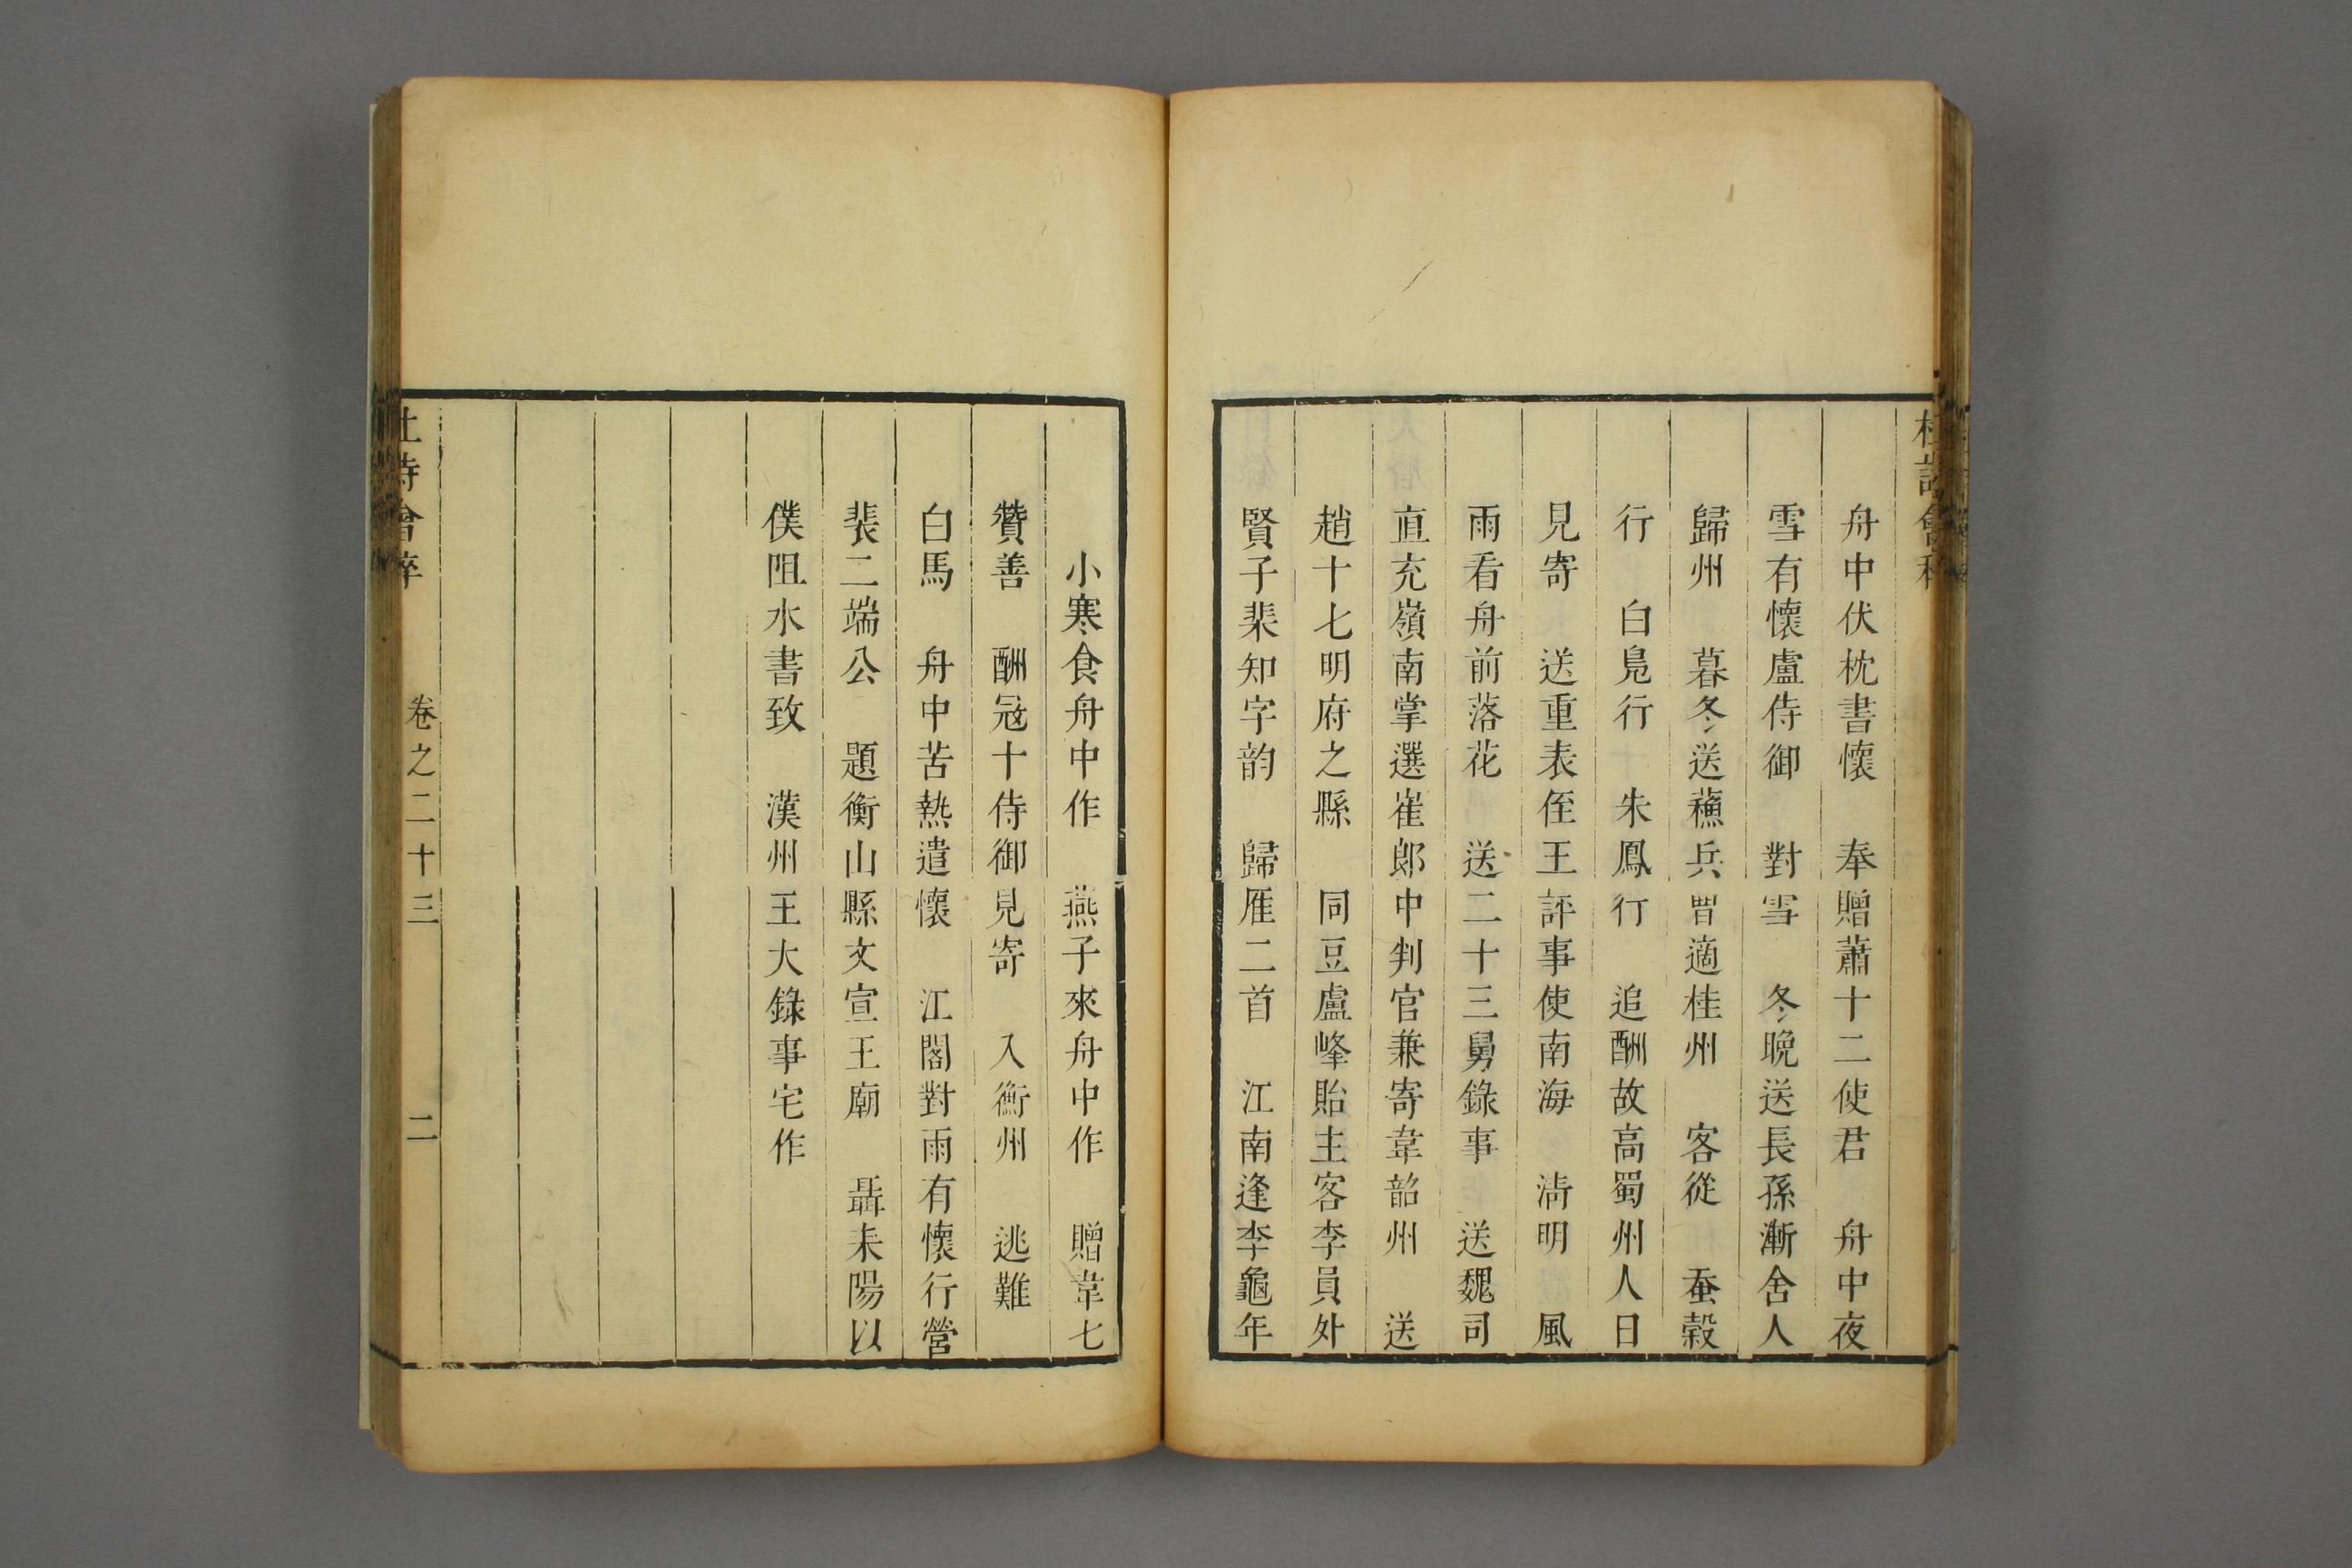 杜詩會稡
舟中伏枕書懷　奉贈蕭十二使君　舟中夜
雪有懷盧侍御　對雪　冬晚送長孫漸舍人
歸州　暮冬送蘓兵曹適桂州　客從　蚕穀
行　白鳬行　朱鳳行　追酬故高蜀州人日
見寄　送重表侄王評事使南海　清明　風
雨看舟前落花　送二十三舅錄事　送魏司
直充嶺南掌選崔郎中判官兼寄韋韶州　送
趙十七明府之縣　同豆盧峰貽主客李員外
賢子棐知字韵　歸雁二首　江南逢李龜年
小寒食舟中作　燕子來舟中作　贈韋七
贊善　酬寇十侍御見寄　入衡州　逃難
白馬　舟中苦熱遣懷　江閣對雨有懷行營
裴二端公　題衡山縣文宣王廟　聶耒陽以
僕阻水書致　漢州王大錄事宅作
杜詩會稡　卷之二十三　二